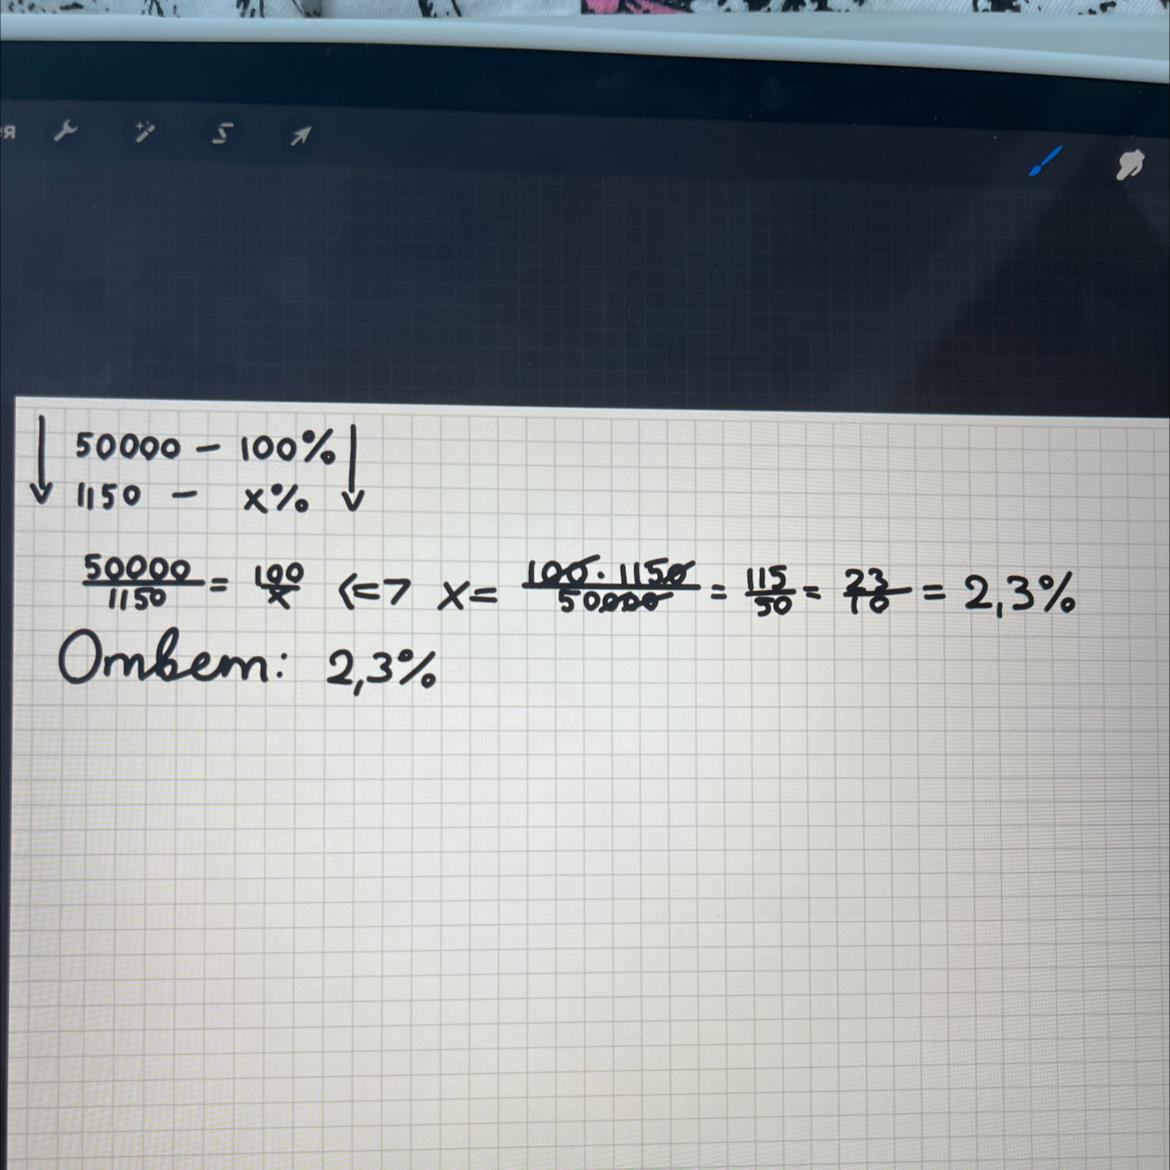 я
50000 – 100%
1150 – x%
50000/1150 = 100/x <=> x = 100·1150/50000 = 115/50 = 23/10 = 2,3%
Ответ: 2,3%